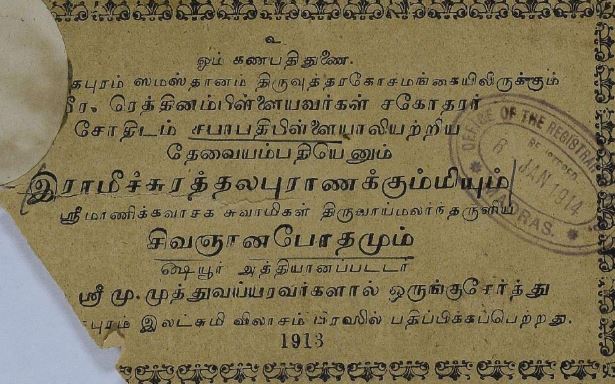 உ
ஓம் கணபதி துணை.
கபுரம் ஸமஸ்தானம் திருவுத்தரகோசமங்கையிலிருக்கும்
ரெத்தினம்பிள்ளையவர்கள் சகோதரர்
சோதிடம் சபாபதிபிள்ளையாலியற்றிய
தேவையம்பதியெனும்
இராமீச்சுரத்தலபுராணக்கும்மியும்
ஸ்ரீமாணிக்கவாசக சுவாமிகள் திருவாய்மலர்ந்தருளிய
சிவஞானபோதமும்
ஷையூர் அத்தியானப்பட்டர்
ஸ்ரீ மு. முத்துவய்யரவர்களால் ஒருங்குசேர்த்து
புரம் இலட்சுமி விலாசம் பிரஸில் பதிப்பிக்கப்பெற்றது.
1913
OFFICE OF THE REGISTRAR
6 JAN 1914
MADRAS.